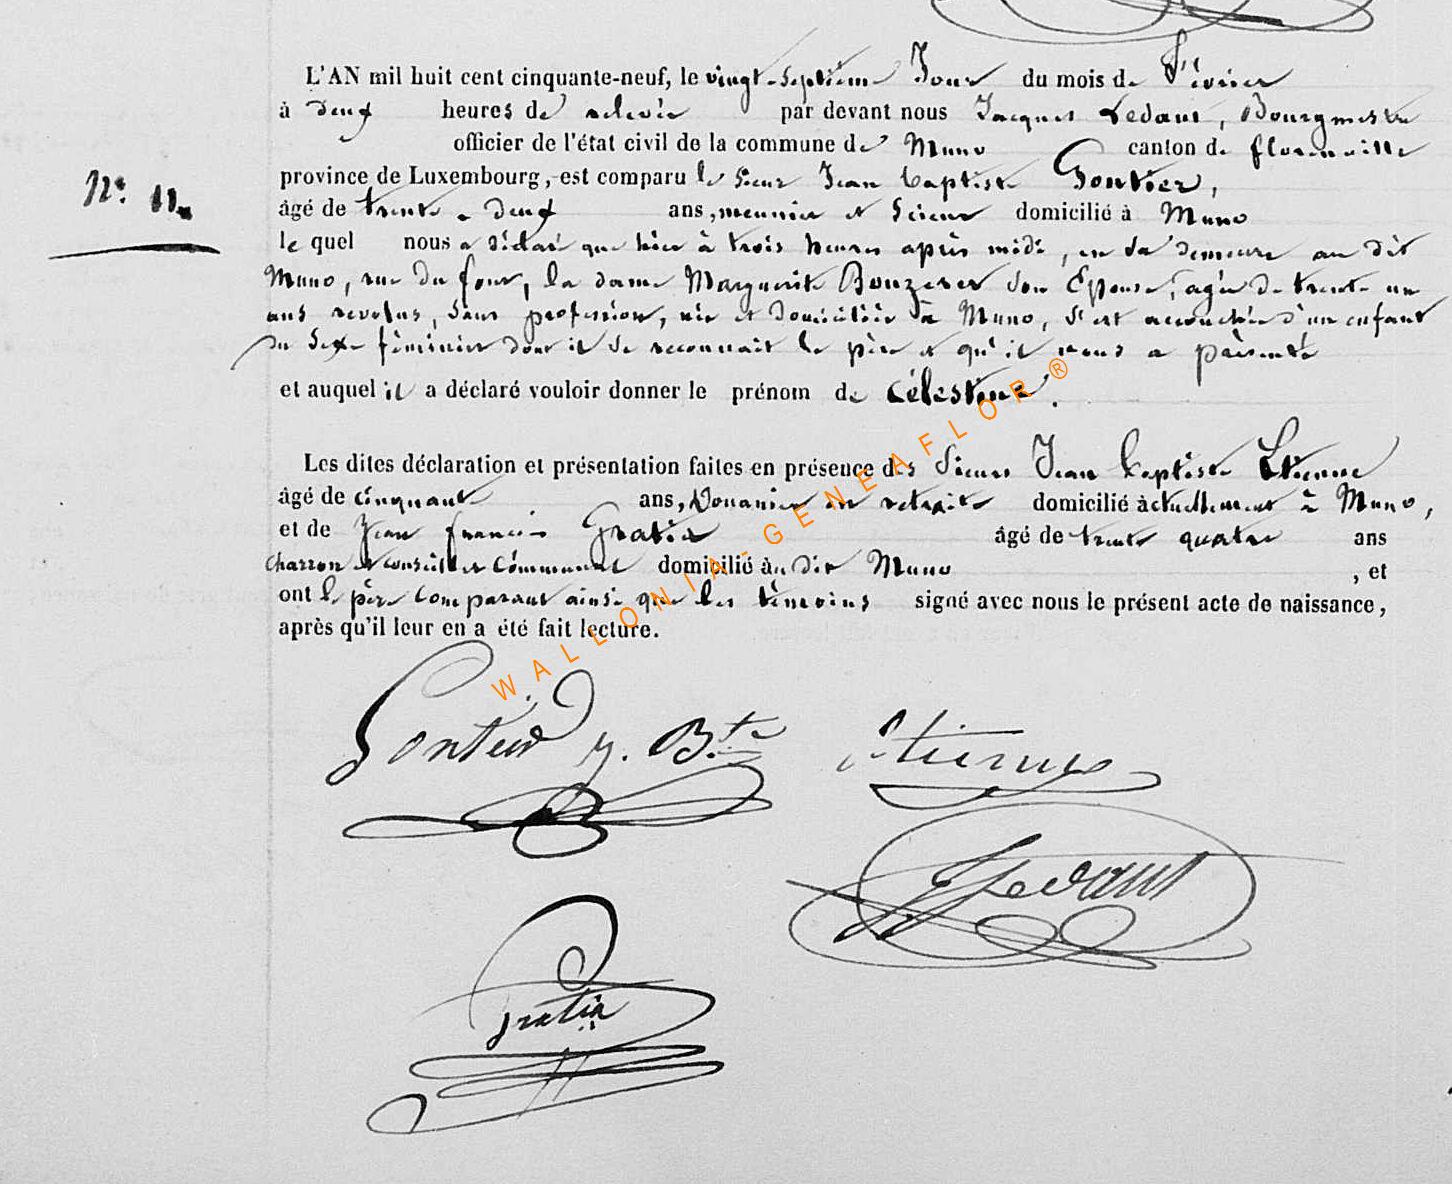 L'AN mil huit cent cinquante-neuf, le vingt-septième Jour du mois de Février
à deux heures de relevée par devant nous Jacques Ledant, Bourgmestre
officier de l'état civil de la commune de Muno canton de florenville
province de Luxembourg, est comparu le Sieur Jean baptiste Gontier,
N° 11
âgé de trente-deux ans, meunier et Scieur domicilié à Muno
le quel nous a déclaré que hier à trois heures après midi, en sa demeure au dit
Muno, rue du four, la dame Marguerite Bouzerer son Epouse, agée de trente un
ans revolus, sans profession, née et domiciliée à Muno, s'est accouchée d'un enfant
du Sexe féminin dont il se reconnait le père et qu'il nous a présenté
et auquel il a déclaré vouloir donner le prénom de Célestine.
Les dites déclaration et présentation faites en présence des Sieurs Jean baptiste Etienne
âgé de cinquante ans, Douanier en retraite domicilié actuellement à Muno,
et de Jean francois Gratia âgé de trente quatre ans
charron et conseiller Communal domicilié au dit Muno , et
ont le père Comparant ainsi que les témoins signé avec nous le présent acte de naissance,
après qu'il leur en a été fait lecture.
WALLONIA-GENEAFLOR ®
Gontier J. Bte Etienne
J Ledant
Gratia